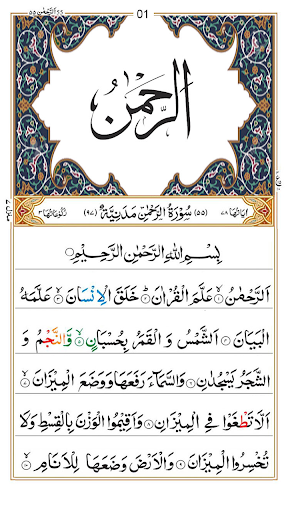 سُوْرَةُ الرَّحْمٰن ٥٥
01
الرَّحْمٰنُ
اٰيَاتُهَا ٧٨ (٥٥) سُوْرَةُ الرَّحْمٰنِ مَدَنِيَّةٌ (٩٧) رُكُوْعَاتُهَا ٣
بِسْمِ اللهِ الرَّحْمٰنِ الرَّحِيْمِ ۝
اَلرَّحْمٰنُ ۝ عَلَّمَ الْقُرْاٰنَ ۝ خَلَقَ الْاِنْسَانَ ۝ عَلَّمَهُ
الْبَيَانَ ۝ اَلشَّمْسُ وَ الْقَمَرُ بِحُسْبَانٍ ۝ وَّالنَّجْمُ وَ
الشَّجَرُ يَسْجُدٰنِ ۝ وَالسَّمَآءَ رَفَعَهَا وَوَضَعَ الْمِيْزَانَ ۝
اَلَّا تَطْغَوْا فِي الْمِيْزَانِ ۝ وَاَقِيْمُوا الْوَزْنَ بِالْقِسْطِ وَلَا
تُخْسِرُوا الْمِيْزَانَ ۝ وَالْاَرْضَ وَضَعَهَا لِلْاَنَامِ ۝